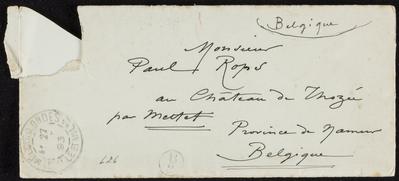 Belgique
Monsieur
Paul Rops
au Château de Thozée
par Mettet
Province de Namur
Belgique
626
B
27
93